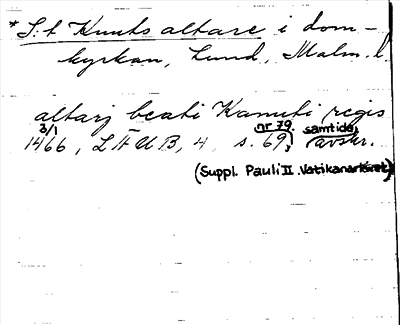 * S:t Knuts altare i dom-
kyrkan, Lund, Malm. l.
altarj beati Kanuti regis
3/1 nr 79. samtida
1466, LÄUB, 4, s. 69, avskr.
(Suppl. Pauli II. Vatikanarkivet)